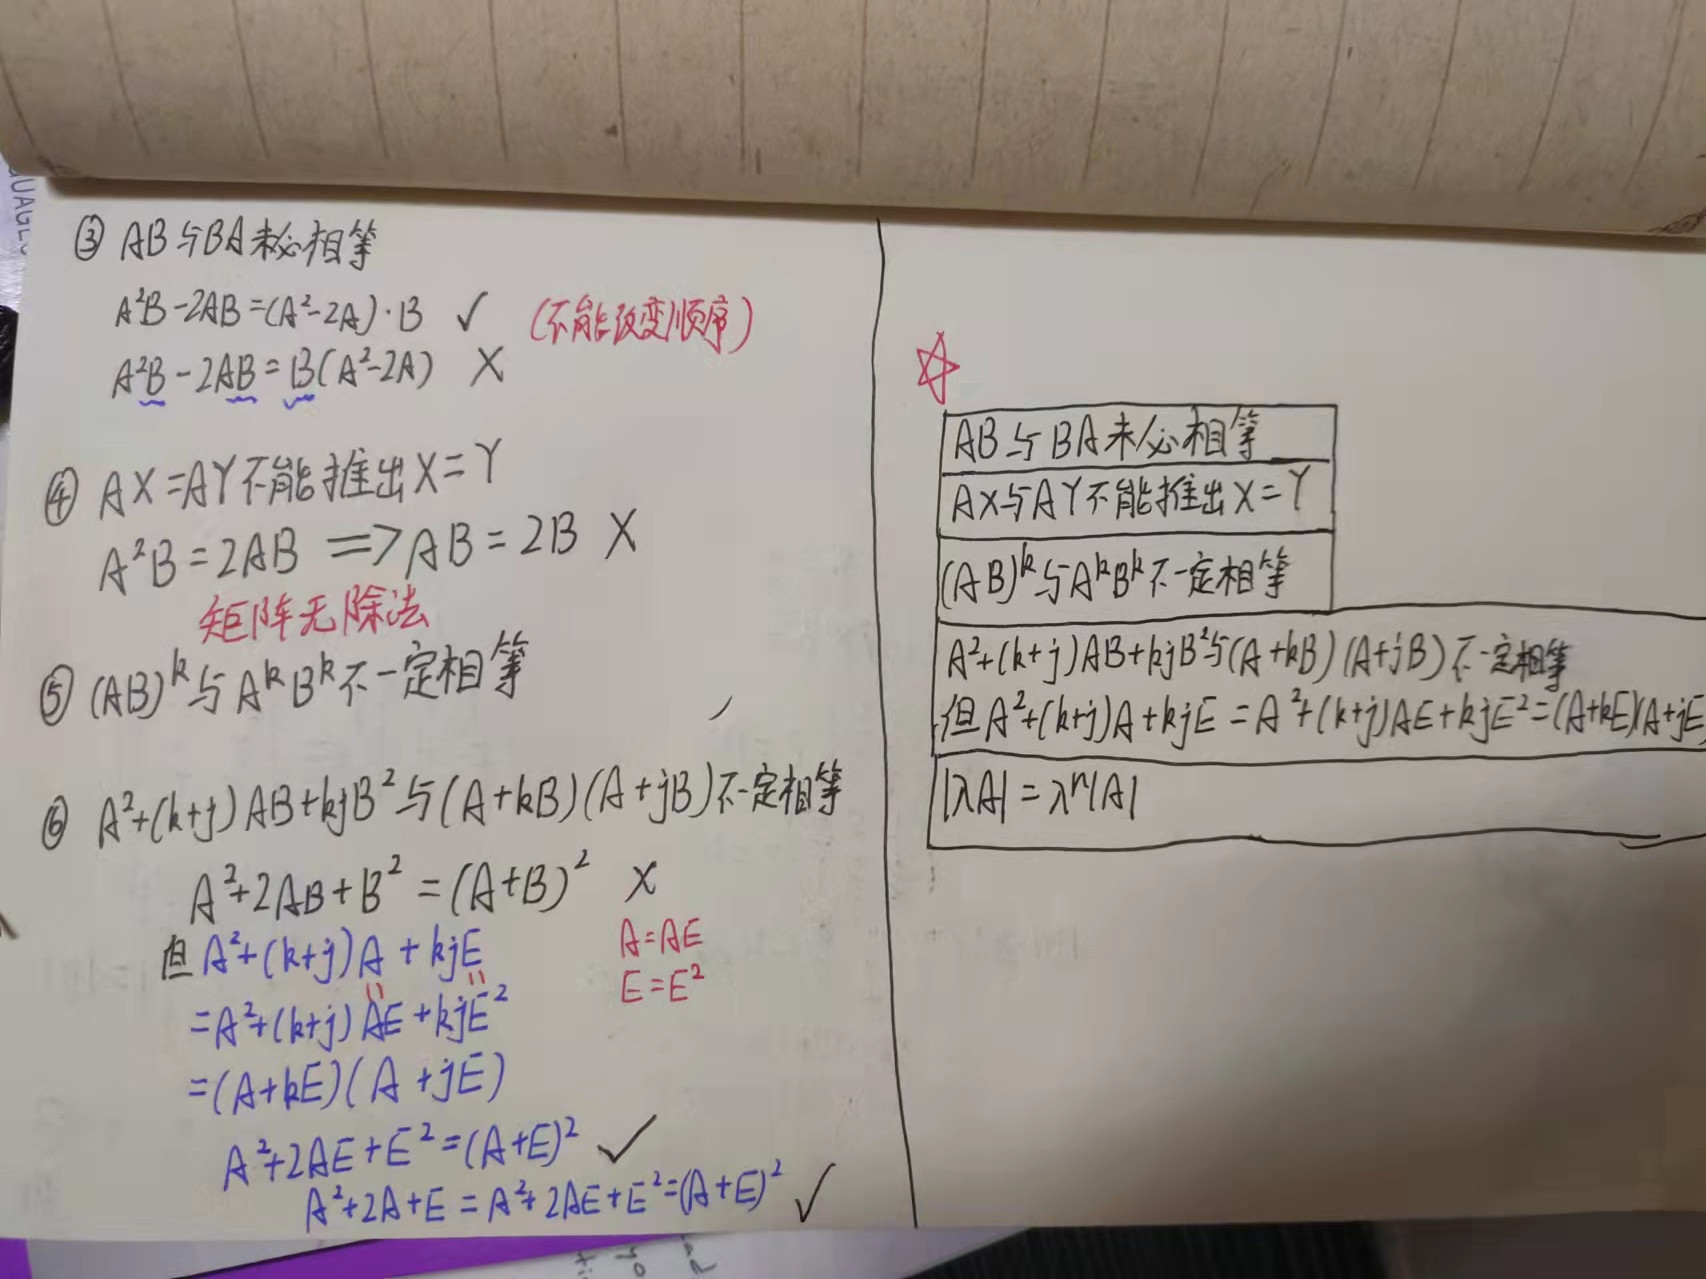 ③ AB与BA未必相等
A²B-2AB=(A²-2A)·B ✓ (不能改变顺序)
A²B-2AB=B(A²-2A) X
④ AX=AY不能推出X=Y
A²B=2AB ⟹ AB=2B X
矩阵无除法
⑤ (AB)^k与A^kB^k不一定相等
⑥ A²+(k+j)AB+kjB²与(A+kB)(A+jB)不一定相等
A²+2AB+B²=(A+B)² X
但A²+(k+j)A+kjE
A=AE
E=E²
=A²+(k+j)AE+kjE²
=(A+kE)(A+jE)
A²+2AE+E²=(A+E)² ✓
A²+2A+E=A²+2AE+E²=(A+E)² ✓
AB与BA未必相等
AX与AY不能推出X=Y
(AB)^k与A^kB^k不一定相等
A²+(k+j)AB+kjB²与(A+kB)(A+jB)不一定相等
但A²+(k+j)A+kjE=A²+(k+j)AE+kjE²=(A+kE)(A+jE)
|λA|=λⁿ|A|